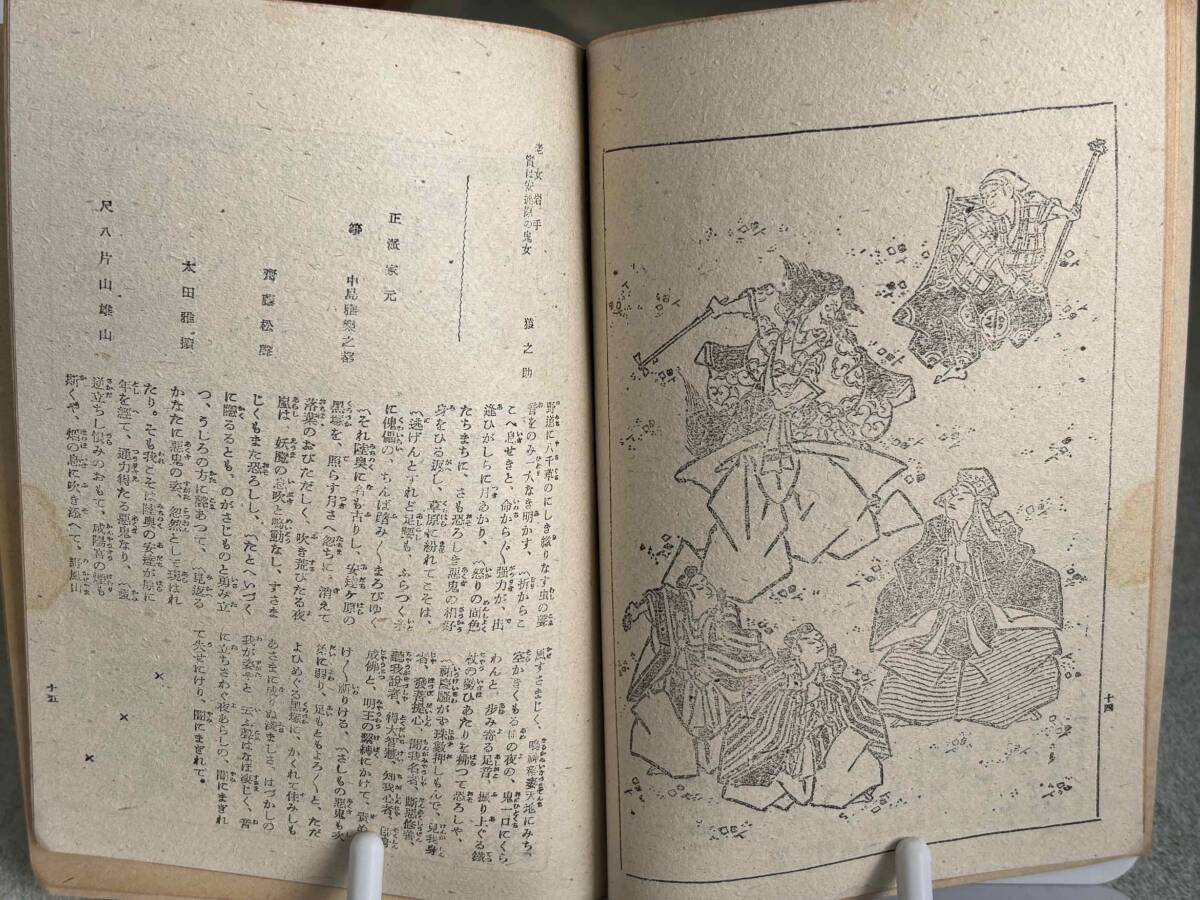 十四
老女岩手
實は安達原の鬼女
猿之助
正派家元
箏
中島雅樂之都
齊藤松聲
太田雅
尺八片山雄山
野道に八千草のにしき綴りなす虫の聲
音をのみ一人なき明かす、〽折からこ
こへ息せきと、命から〴〵强力が、出
逢ひがしらに月あかり、〽怒りの面色
たちまちに、さも恐ろしき惡鬼の相好
身をひる返し、草原に紛れてこそは、
〽逃げんとすれど足腰も、ふらつく糸
に傀儡の、ちんば踏み〳〵まろびゆく
〽それ陸奥に名も古りし、安達ケ原の
黑塚を、照らす月さへ忽ちに、消えて
落葉のおびたゞしく、吹き荒びたる夜
嵐は、妖魔の息吹と鳴動なし、すさま
じくもまた恐ろしゝ、〽たとへいづく
に隱るるとも、のがさじものと勇み立
つ、うしろの方に聲あつて、〽見返る
かなたに惡鬼の姿、忽然として現はれ
たり。そも我こそは陸奥の安達が原に
年を經て、通力得たる惡鬼なり、〽髮
逆立ちし恨みのおもて、咸陽宮の煙も
斯くや、焰の息に吹き添へて、野風山
風すさまじく、鳴神稻妻天地にみち、
空かきくもる雨の夜の、鬼一口にくら
わんと、歩み寄る足音、振り上ぐる鐵
杖の勢ひあたりを拂つて恐ろしや、
〽祐慶騷がず珠數押しもんで、見我身
者、發菩提心、聞我名者、斷惡修善、
聽我說者、得大智慧、知我心者、卽身
成佛と、明王の繫縛にかけて、責め
け〳〵祈りける、〽さしもの惡鬼も次
第に弱り、足もともよろ〳〵と、たゞ
よひめぐる黑塚に、かくれて住みしも
あさまに成りぬ淺ましさ、はづかしの
我が姿やと、云ふ聲はなほ凄じく、音
に立ちさわぐ夜あらしの、闇にまぎれ
て失せにけり、闇にまぎれて。
十五